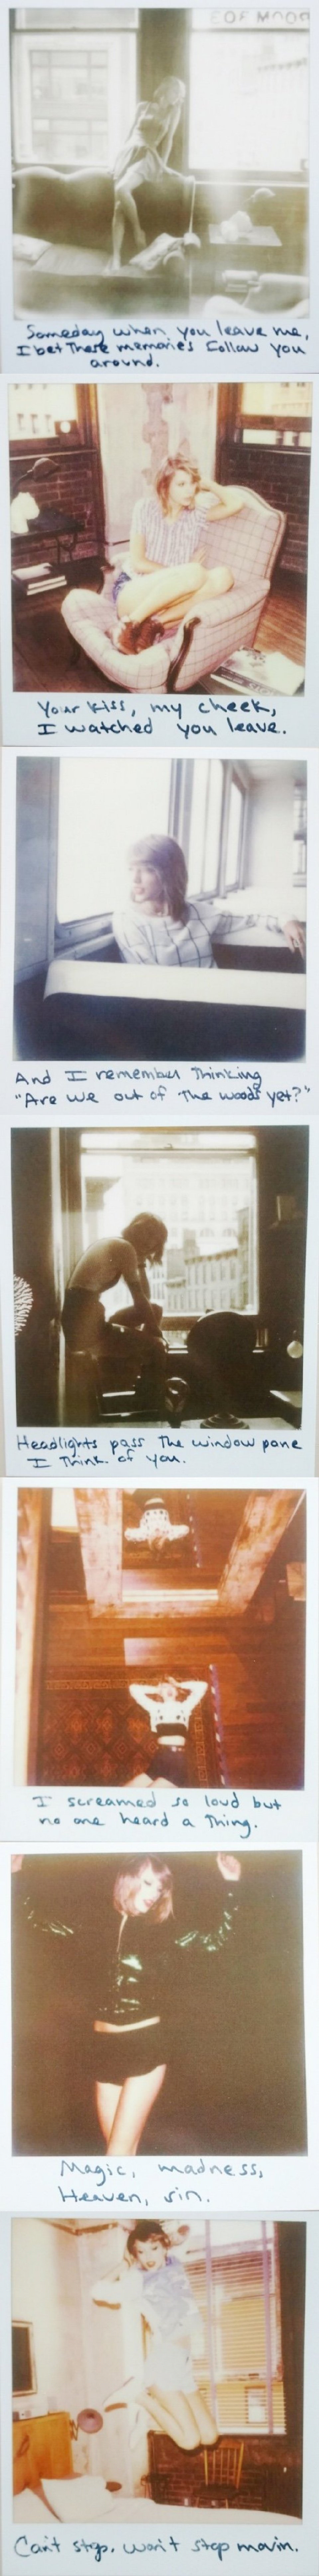 EOF MOOD
Someday when you leave me,
I bet These memories Follow you
around.
Your kiss, my cheek,
I watched you leave.
And I remember Thinking
"Are we out of The woods yet?"
Headlights pass The window pane
I Think of you.
I screamed so loud but
no one heard a Thing.
Magic, madness,
Heaven, sin.
Can't stop, won't stop movin.